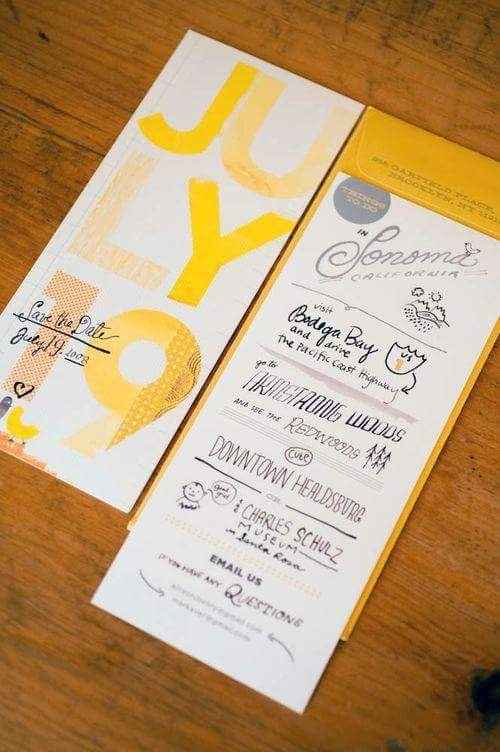 JU
LY
19
Save the Date
July 19, 2009
GARFIELD PLACE
BROOKLYN, NY
THINGS
TO DO
IN
Sonoma
CALIFORNIA
visit
Bodega Bay
and drive
The Pacific Coast Highway
US
go to
ARMSTRONG WOODS
AND SEE THE REDWOODS
CUTE
DOWNTOWN HEALDSBURG
OR
good grief
CHARLES SCHULZ
MUSEUM
in Santa Rosa
EMAIL US
IF YOU HAVE ANY QUESTIONS